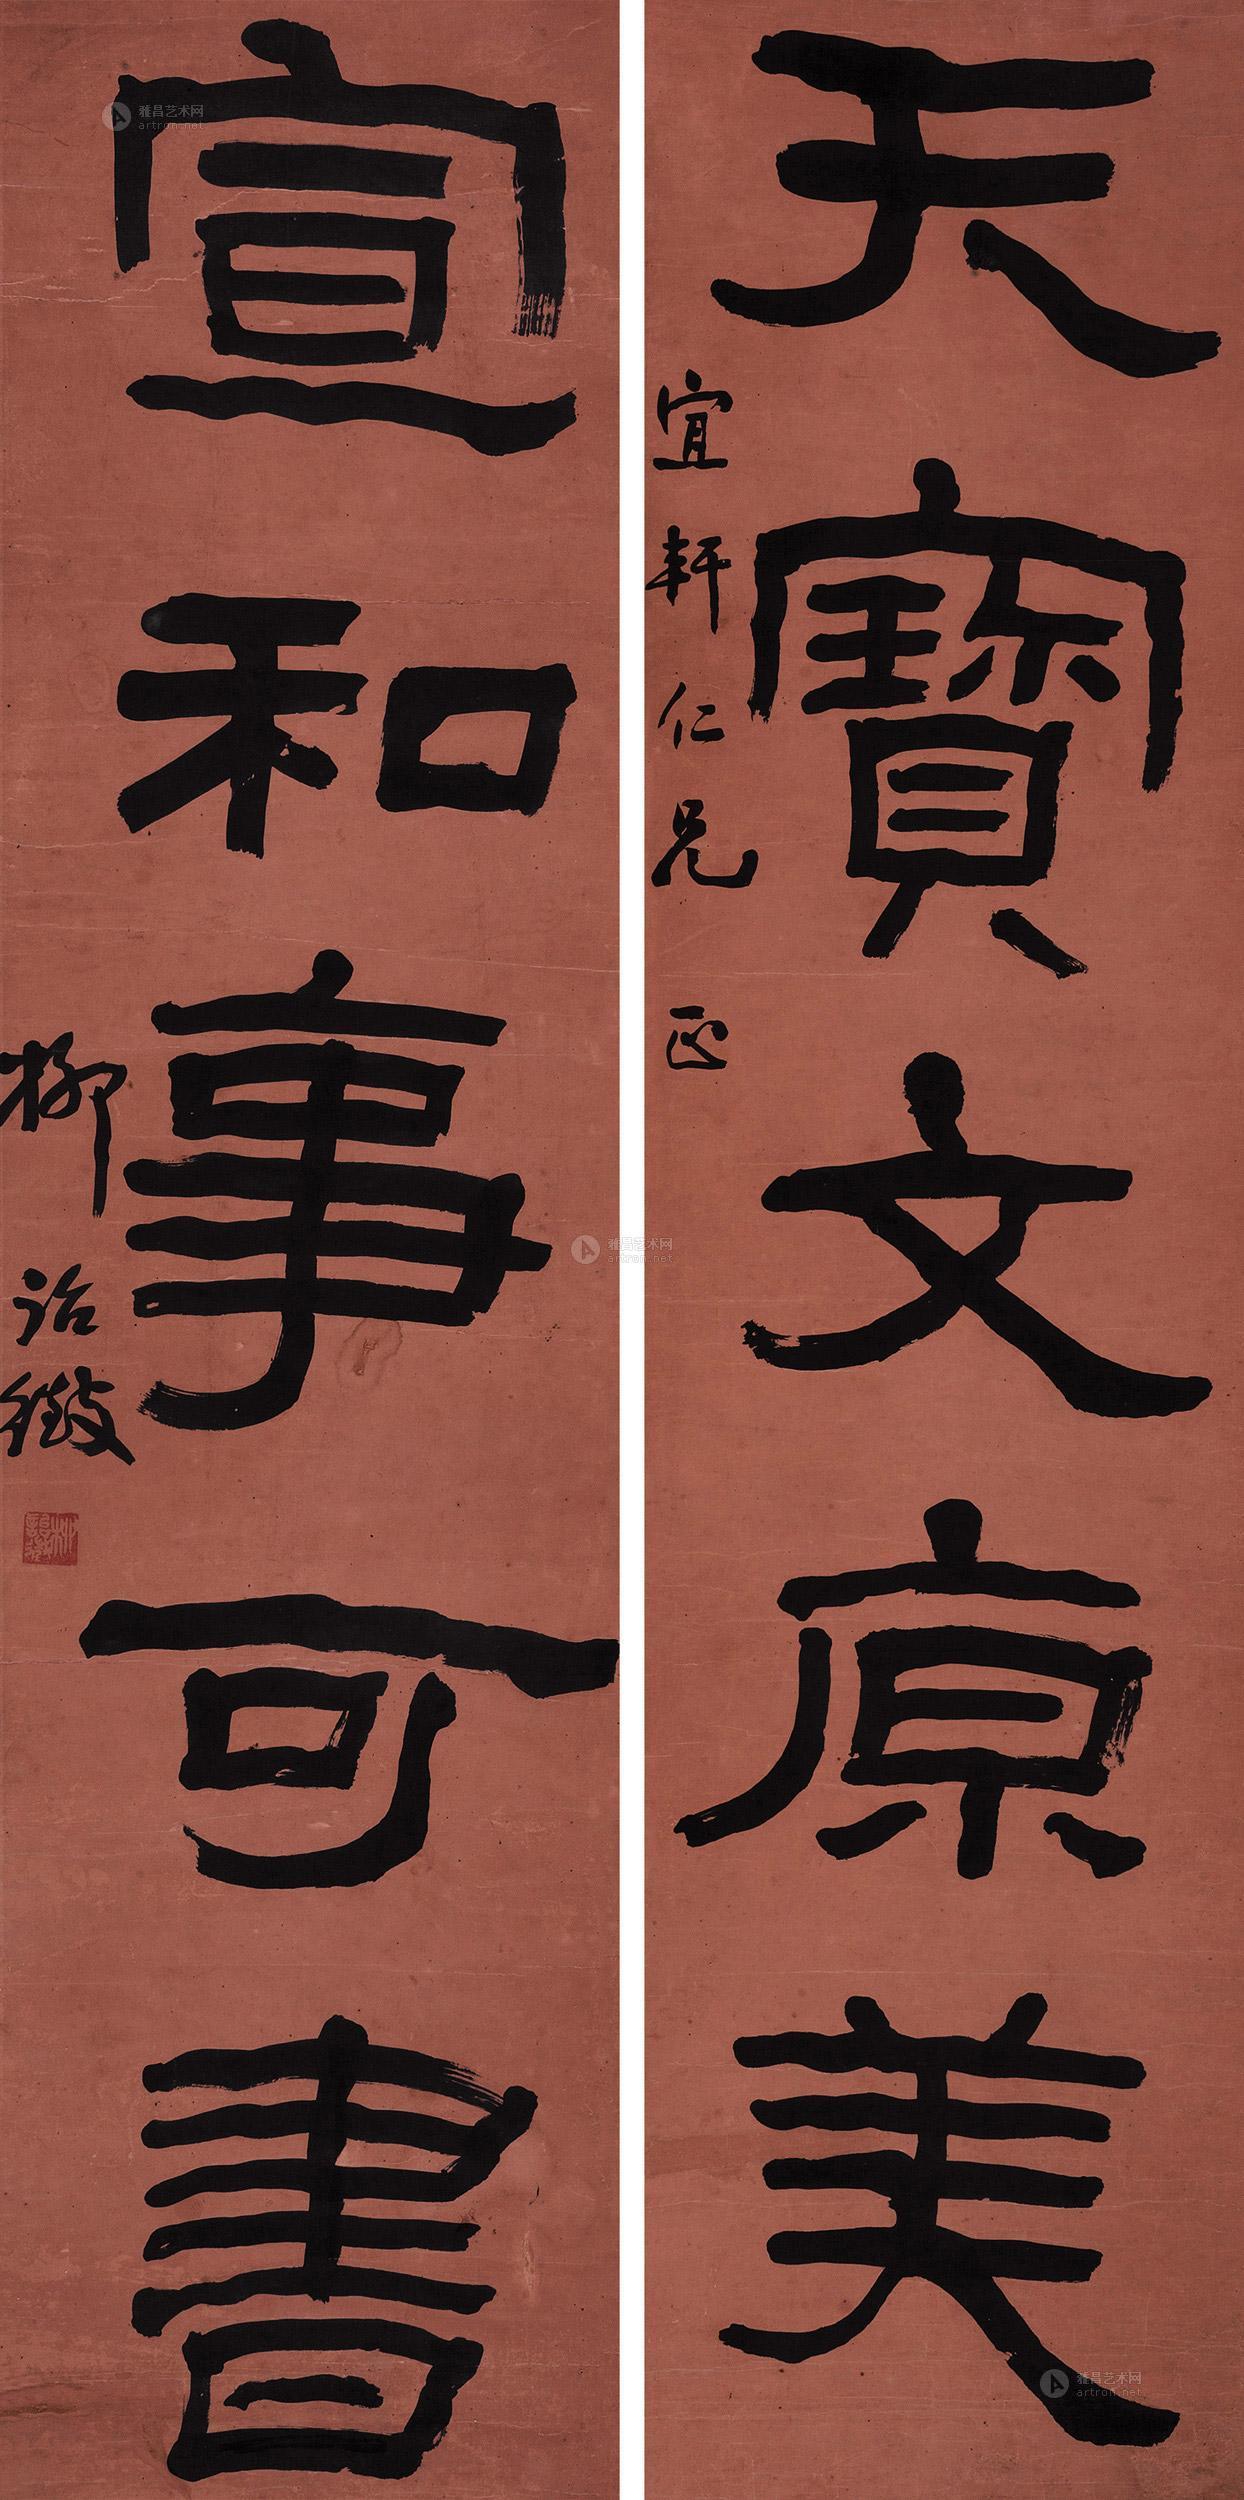 天寶文原美
宜軒仁兄正
宣和事可書
柳詒徵
柳詒徵
雅昌艺术网
artron.net
雅昌艺术网
artron.net
雅昌艺术网
artron.net